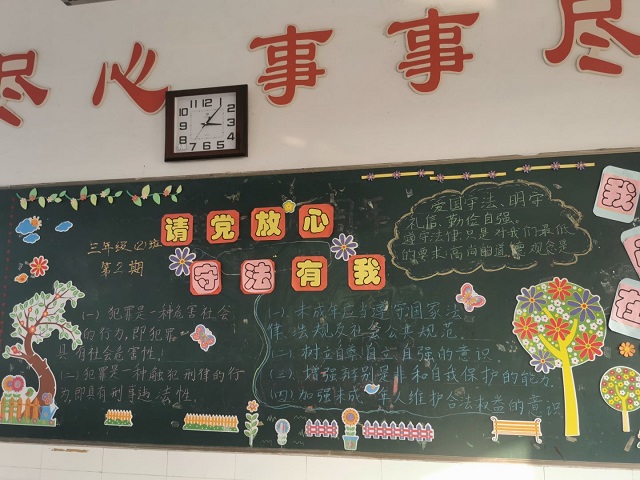 尽心 事事 尽
12 1 2 3 4 5 6 7 8 9 10 11
请党放心
守法有我
我
在
三年级(2)班
第2期
(一)犯罪是一种危害社会
的行为,即犯罪
具有社会危害性!
(二)犯罪是一种触犯刑律的行
为,即具有刑事违法性.
爱国守法、明守
礼信、勤俭自强、
遵守法律只是对我们最低
的要求,高尚的道 观念是
(一)未成年应当遵守国家法
律法规及社会公共规范.
(二)树立自尊自立自强的意识
(三)增强辨别是非和自我保护的能力.
(四)加强未成年人维护合法权益的意识